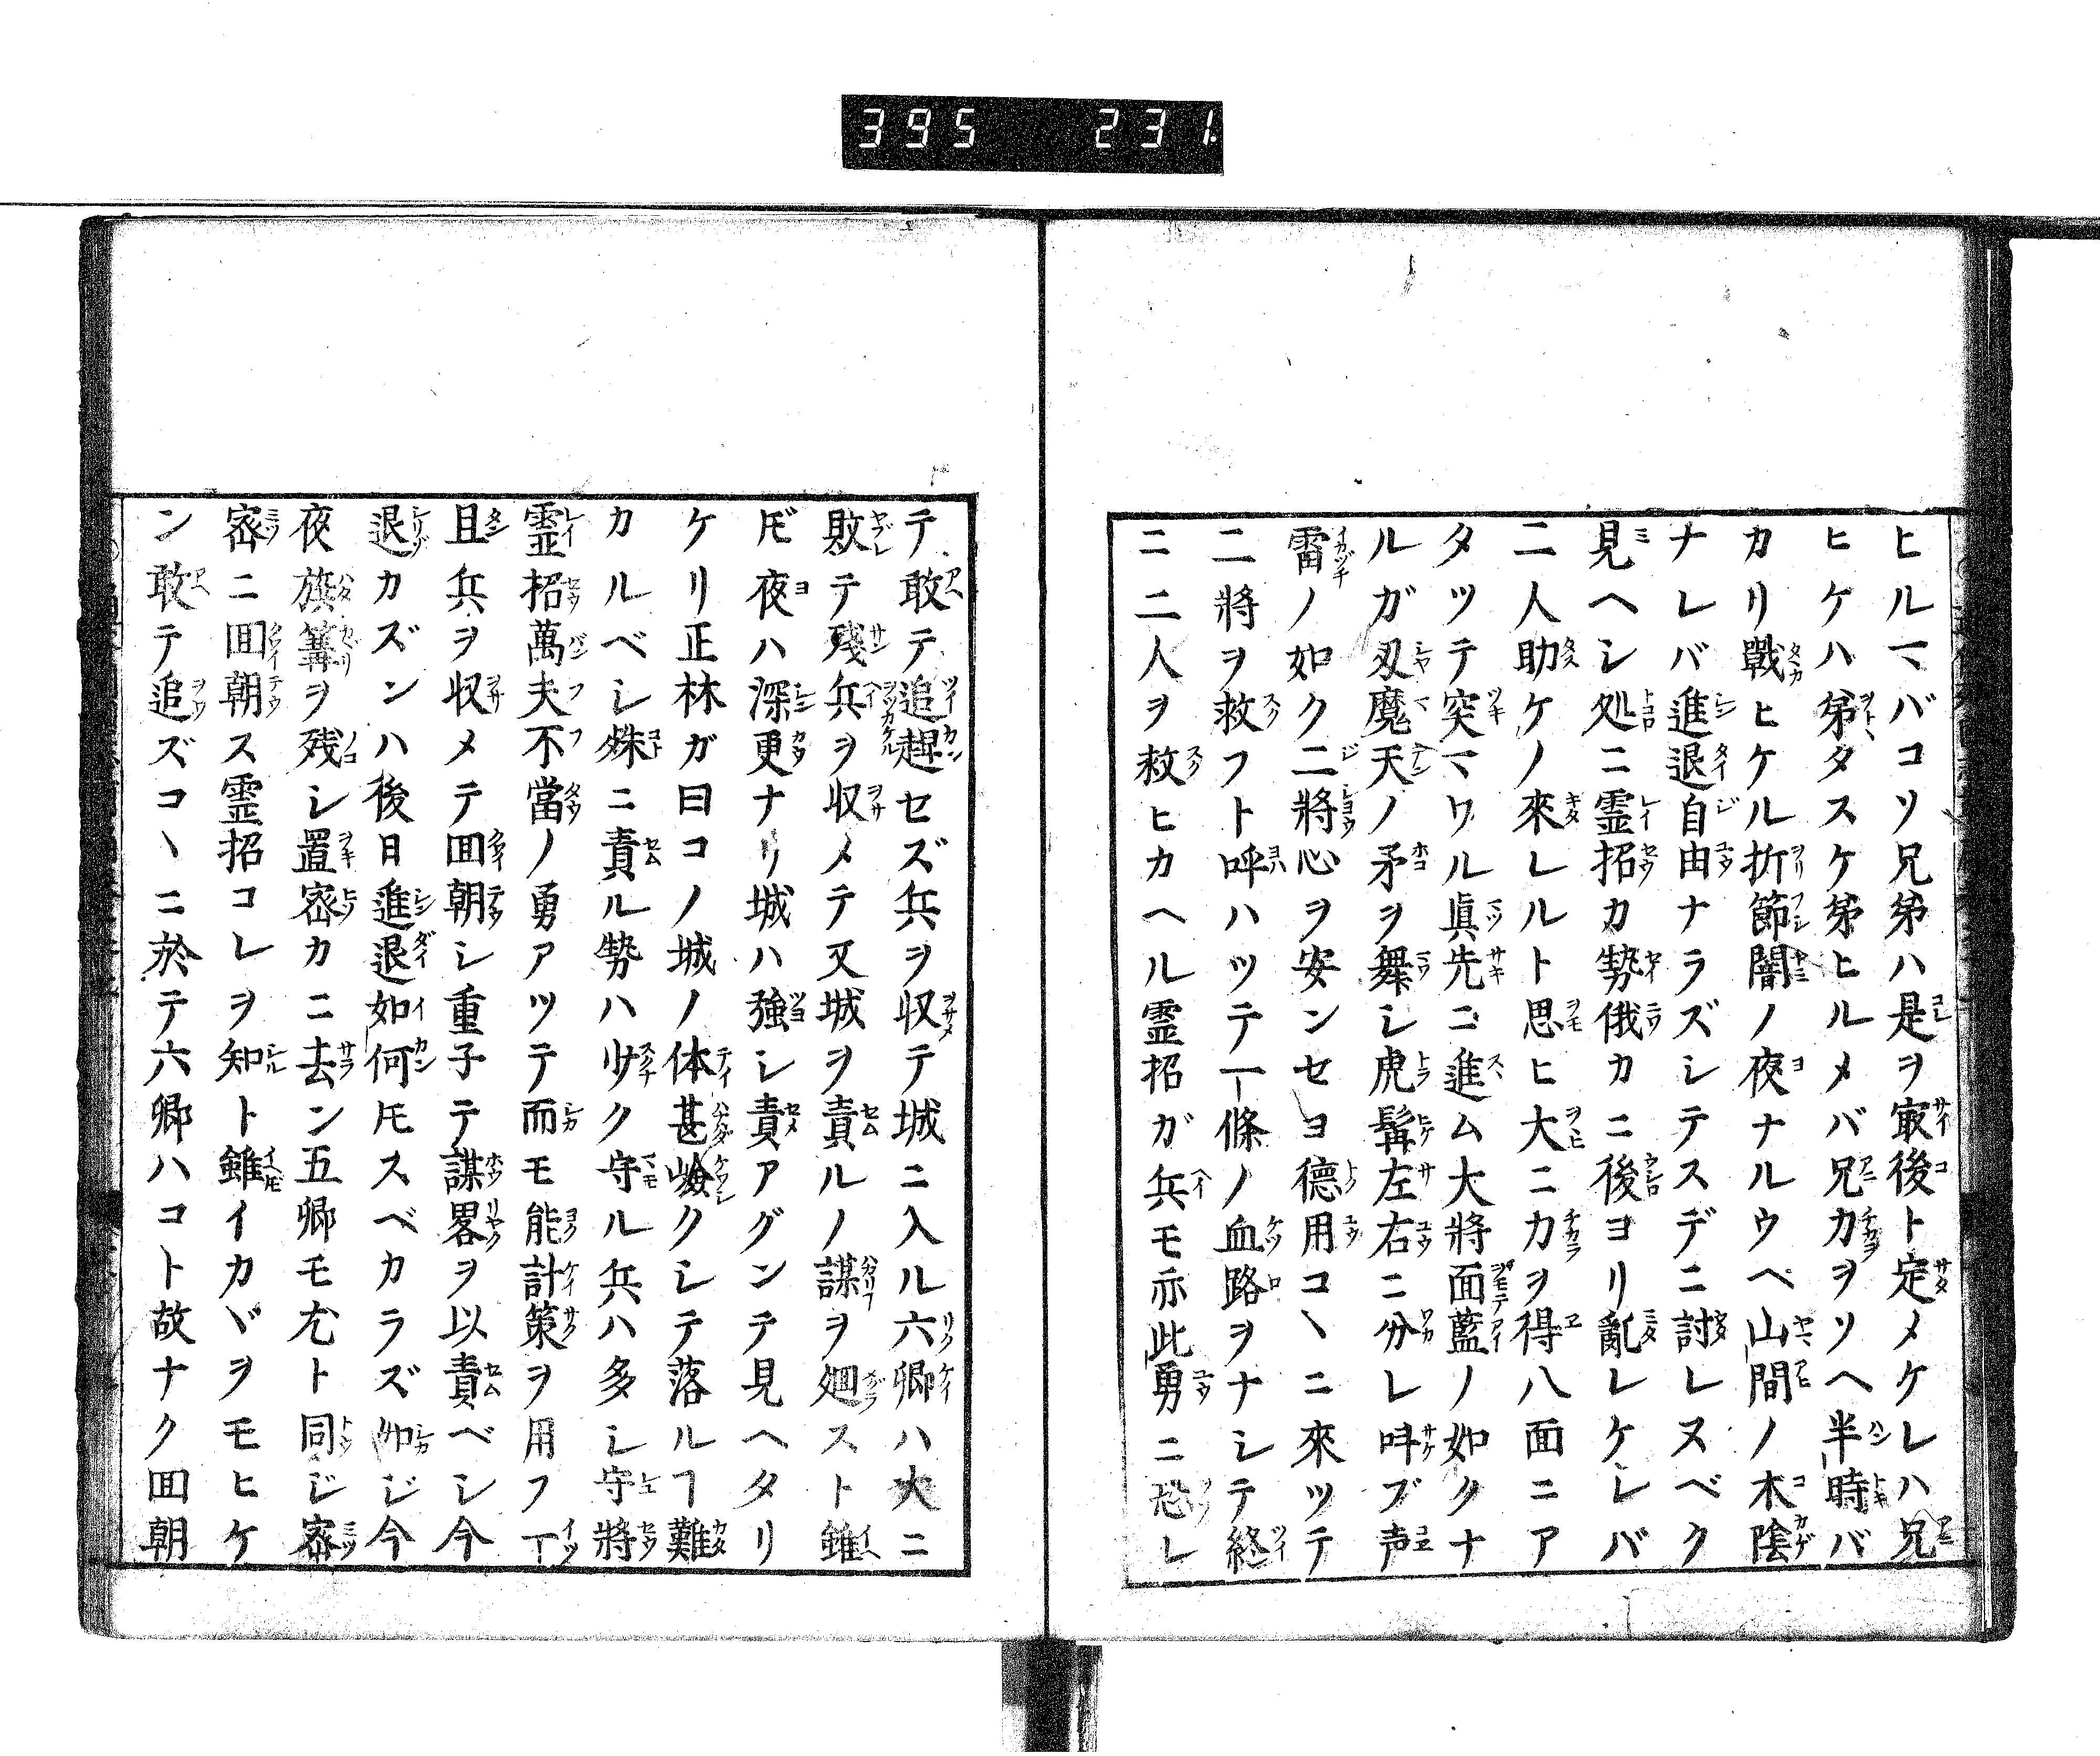 395 231
ヒルマバコソ兄弟ハ是ヲ冣後ト定メケレハ兄
ヒケハ弟タスケ弟ヒルメバ兄力ヲソヘ半時バ
カリ戰ヒケル折節闇ノ夜ナルウヘ山間ノ木陰
ナレバ進退自由ナラズシテスデニ討レヌベク
見ヘシ処ニ霊招カ勢俄カニ後ヨリ亂レケレバ
二人助ケノ來レルト思ヒ大ニ力ヲ得八面ニア
タツテ突マワル眞先ニ進ム大將面藍ノ如クナ
ルガ刄魔天ノ矛ヲ舞シ虎髯左右ニ分レ呌ブ声
雷ノ如ク二將心ヲ安ンセヨ德用コヽニ來ツテ
二將ヲ救フト呼ハツテ一條ノ血路ヲナシテ終
ニ二人ヲ救ヒカヘル霊招ガ兵モ亦此勇ニ恐レ
テ敢テ追趕セズ兵ヲ収テ城ニ入ル六卿ハ大ニ
敗テ殘兵ヲ収メテ又城ヲ責ルノ謀ヲ廻スト雖
ドモ夜ハ深更ナリ城ハ強シ責アグンテ見ヘタリ
ケリ正林ガ曰コノ城ノ体甚嶮クシテ落ルヿ難
カルベシ殊ニ責ル勢ハ少ク守ル兵ハ多シ守將
霊招萬夫不當ノ勇アツテ而モ能計策ヲ用フ一
且兵ヲ収メテ囬朝シ重子テ謀畧ヲ以責ベシ今
退カズンハ後日進退如何トモスベカラズ如ジ今
夜旗篝ヲ残シ置密カニ去ン五卿モ尤ト同ジ密
密ニ囬朝ス霊招コレヲ知ト雖イカヾヲモヒケ
ン敢テ追ズコヽニ於テ六卿ハコト故ナク囬朝